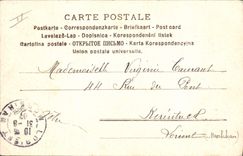 CARTE POSTALE
Postkarte - Correspondenzkarte - Briefkaart - Post card
Levelező-Lap - Dopisnica - Korespondenční lístek
Cartolina postale - ОТКРЫТОЕ ПИСЬМО - Karta Korespondencyjna
Union postale universelle.
Mademoiselle Virginie
44 Rue du Pont
Lorient (Morbihan)
LORIENT